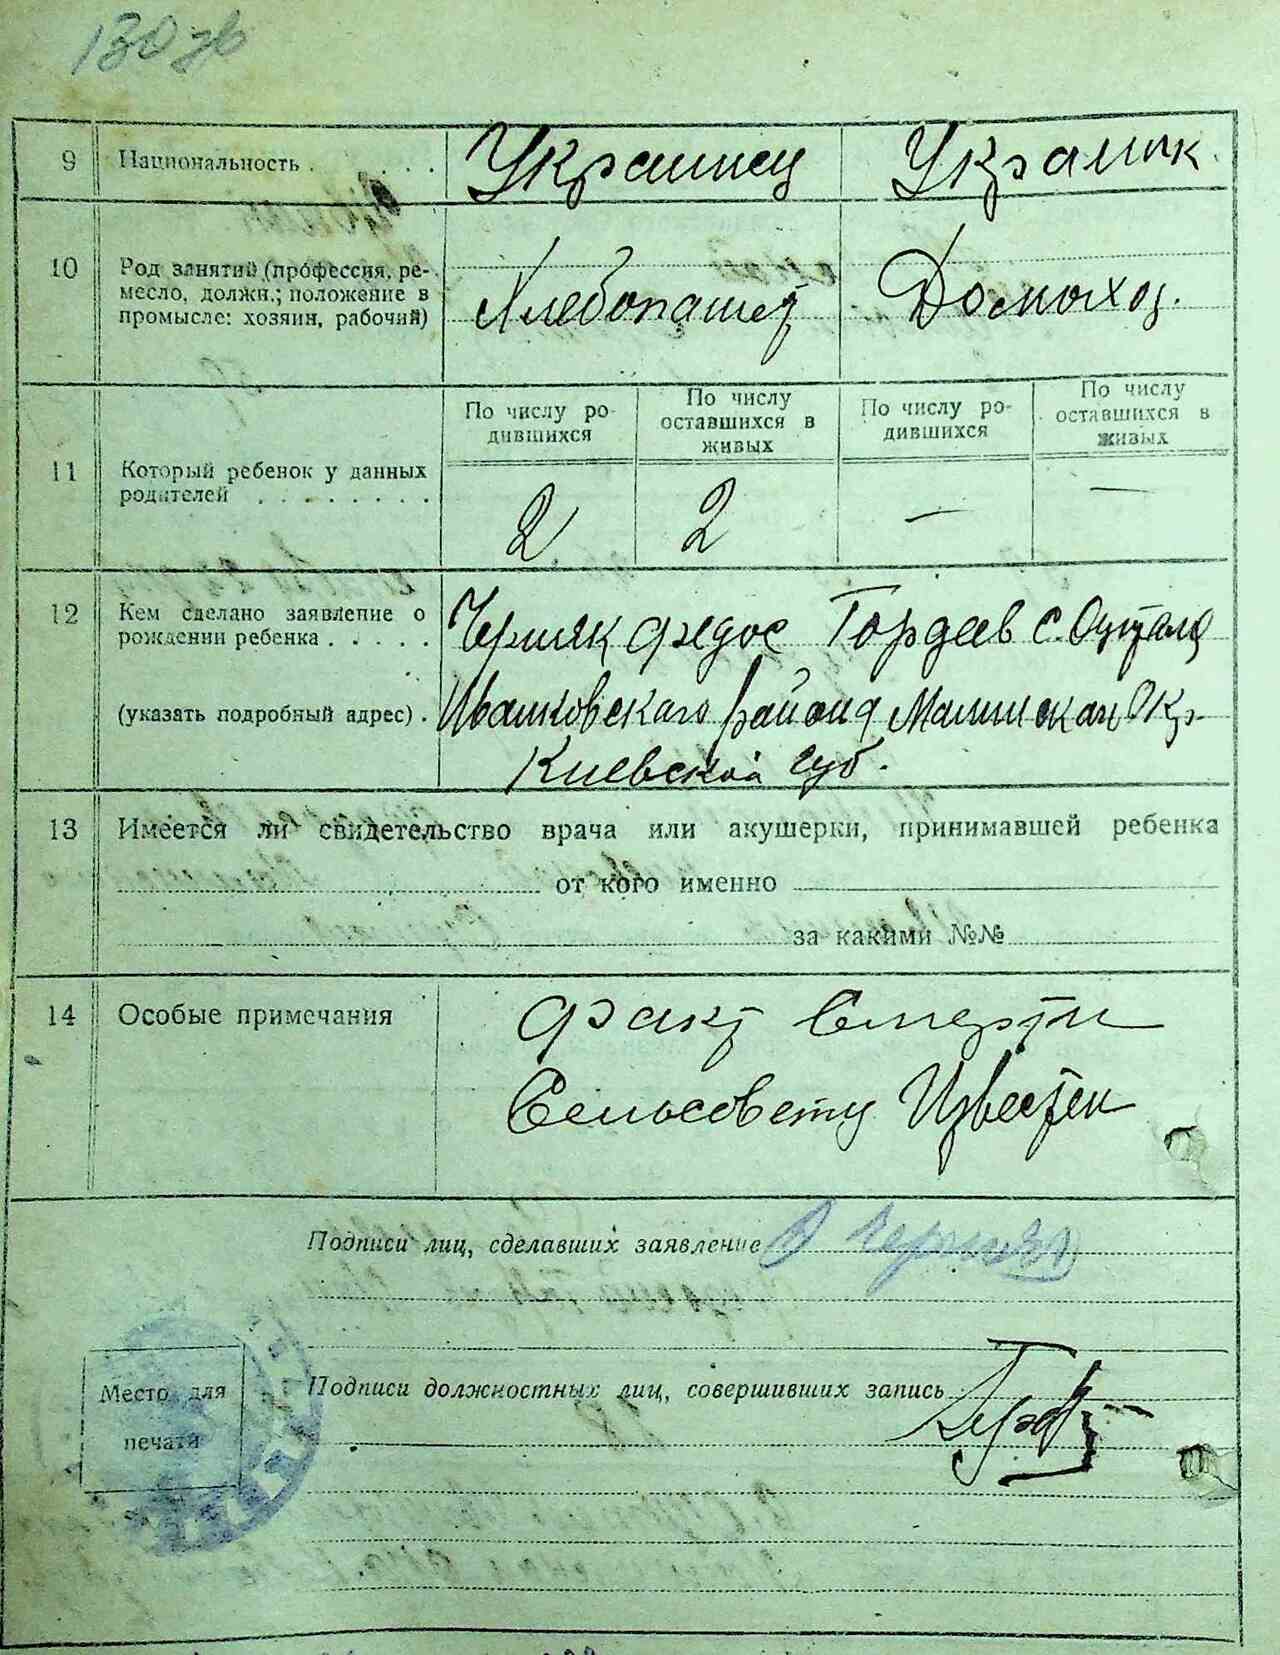 130 зв
9 Национальность . . . . . Украинец Украинк.
10 Род занятий (профессия, ре-
месло, должн.; положение в
промысле: хозяин, рабочий) Хлебопашец Домохоз.
По числу ро-
дившихся
По числу
оставшихся в
живых
По числу ро-
дившихся
По числу
оставшихся в
живых
11 Который ребенок у данных
родителей . . . . . . . . 2 2 — —
12 Кем сделано заявление о
рождении ребенка . . . . . Черняк Федос Гордеев с.
(указать подробный адрес) . Иванковского района Малинской Окр.
Киевской губ.
13 Имеется ли свидетельство врача или акушерки, принимавшей ребенка
от кого именно
за какими №№
14 Особые примечания Факт Смерти
Сельсовету Известен
Подписи лиц, сделавших заявление
Место для
печати
Подписи должностных лиц, совершивших запись